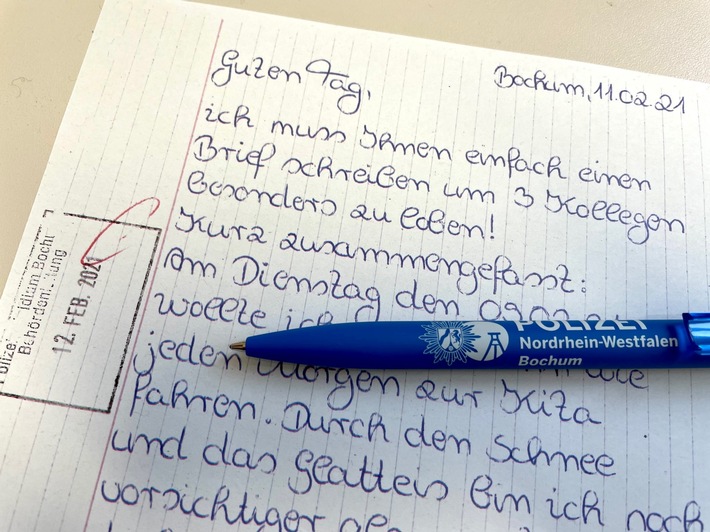 Guten Tag,
Bochum, 11.02.21
ich muss Ihnen einfach einen
Brief schreiben um 3 Kollegen
besonders zu loben!
Kurz zusammengefasst:
Am Dienstag den 09.02
wollte ich
jeden Morgen zur Kita
fahren. Durch den Schnee
und das Glatteis bin ich noch
vorsichtiger
12. FEB. 2021
POLIZEI
Nordrhein-Westfalen
Bochum